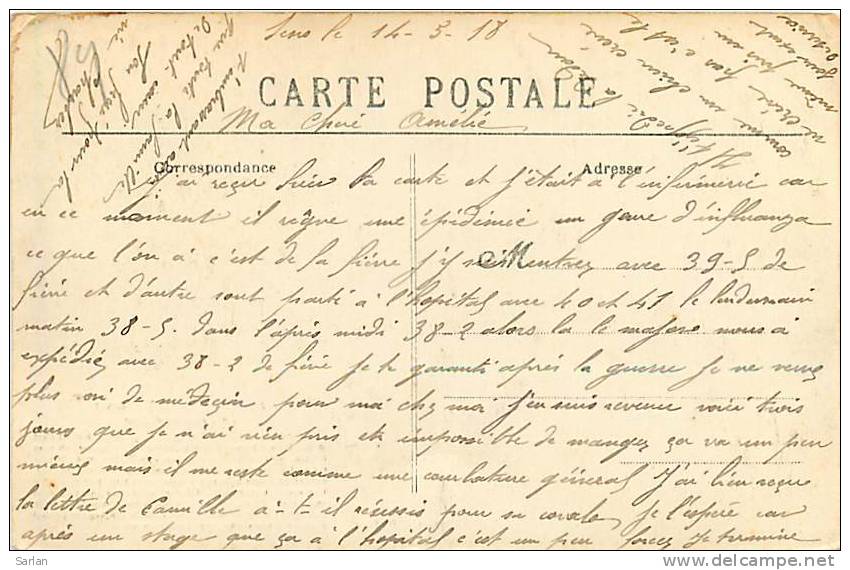 Sens le 14-5-18
CARTE POSTALE
Ma Chère Amélie
Correspondance
Adresse
J'ai reçu hier ta carte et j'était a l'infirmerie car
en ce moment il règne une épidémie un genre d'influanza
ce que l'on à c'est de la fièvre j'y suis rentrez avec 39-5 de
fièvre et d'autre sont parti à l'hopital avec 40 et 41 le lendemain
matin 38-5. dans l'après midi 38-2 alors la le majore nous à
expédiez avec 38-2 de fièvre je te garanti après la guerre je ne veux
plus de médeçin pour moi chez moi j'en suis revenue voici trois
jours que je n'ai rien pris et impossible de mangez ça va un peu
mieux mais il me reste comme une courbature général J'ai bien reçue
la lettre de Camille a-t-il réussis pour sa je l'espére car
après un stage que ça à l'hopital c'est un peu forcez Je termine
t'embrassant ainsi
que toute la famille
De tout cœur
Ton
Charles
85
Sarlan
www.delcampe.net